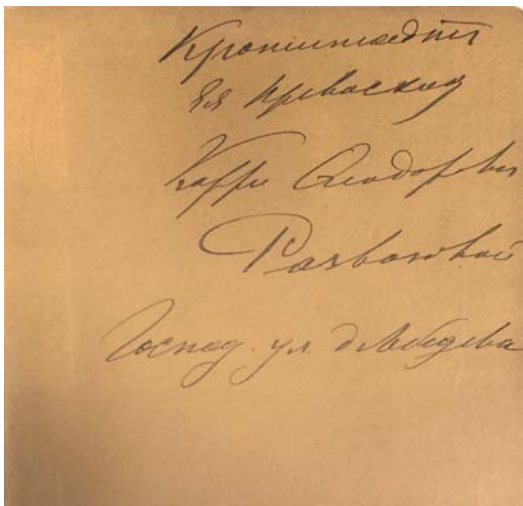 Кронштадтъ
Ея Превосход
Ѳеодоровн
Развозовой
Господ. ул. д Лебедева